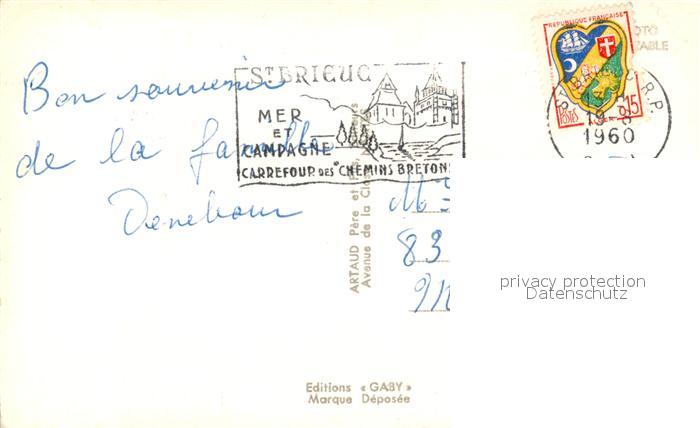 Bon souvenir
de la famille
ST BRIEUC
MER
ET
CAMPAGNE
CARREFOUR DES CHEMINS BRETONS
REPUBLIQUE FRANÇAISE
POSTES
0.15
ALGER
ST BRIEUC R.P.
1960
ARTAUD Père et Fils
Avenue de la
M
83
privacy protection
Datenschutz
Editions « GABY »
Marque Déposée